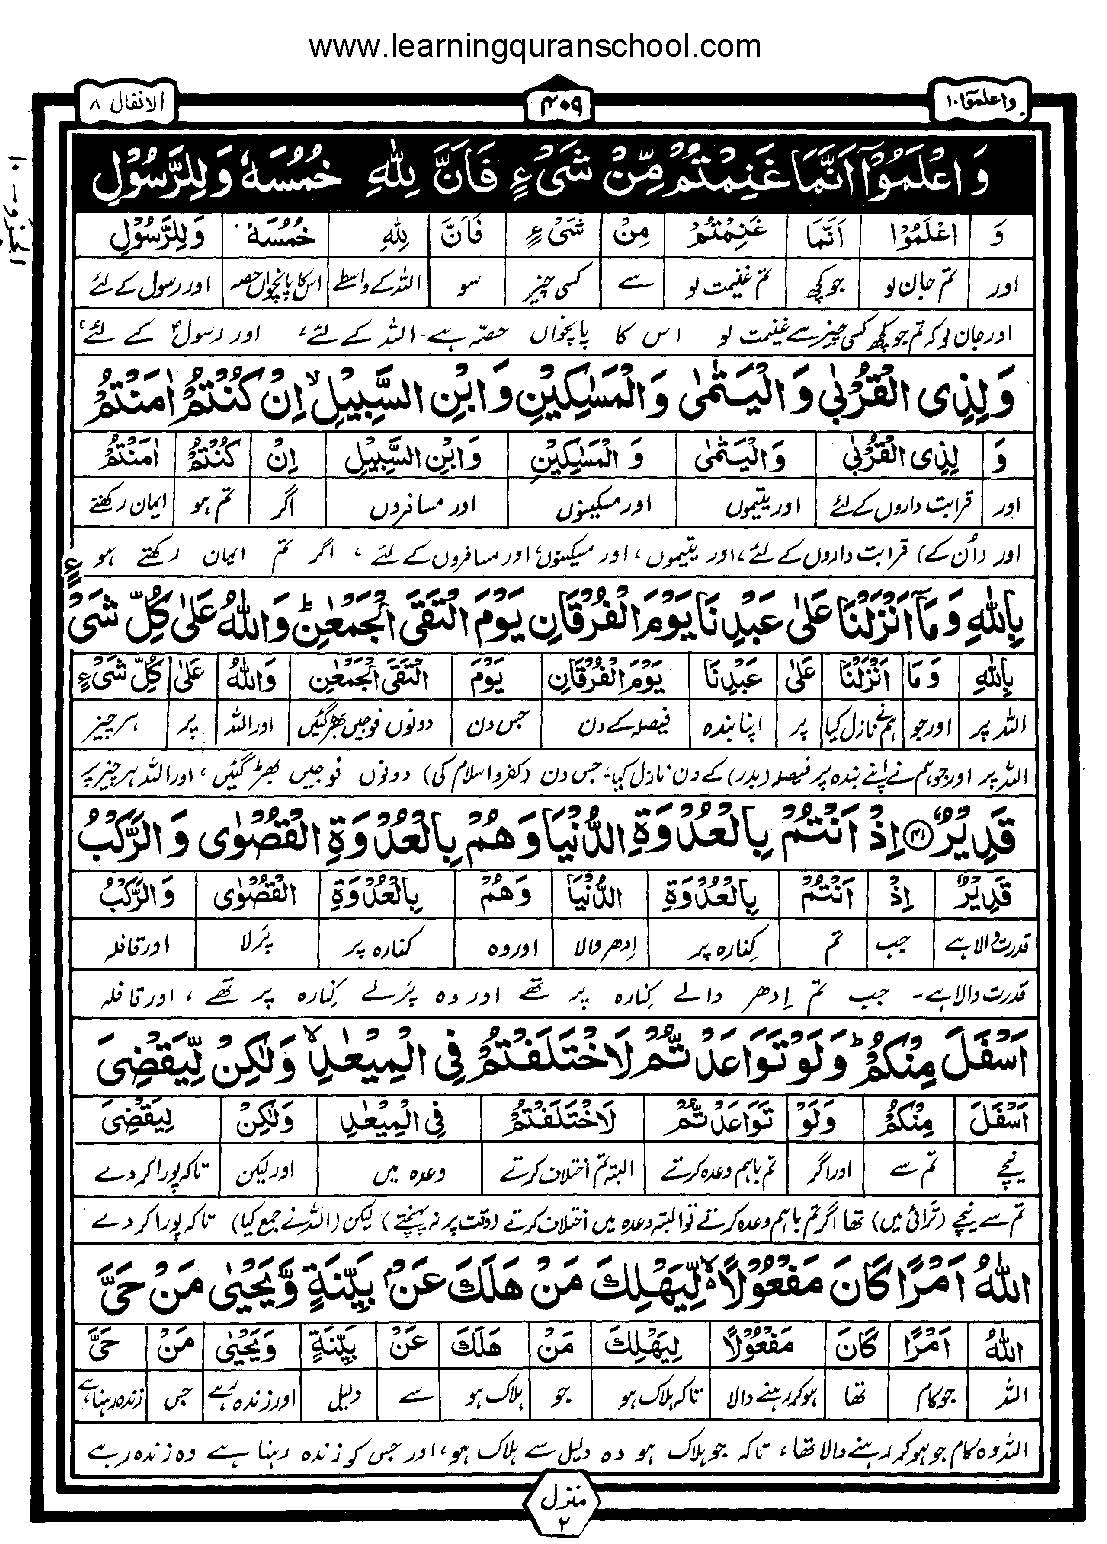 www.learningquranschool.com
واعلموٓا۱۰ ۴۰۹ الانفال ۸
الجزو-۱۰
وَاعْلَمُوْٓا اَنَّمَا غَنِمْتُمْ مِّنْ شَیْءٍ فَاَنَّ لِلّٰهِ خُمُسَهٗ وَلِلرَّسُوْلِ
وَ اعْلَمُوْٓا اَنَّمَا غَنِمْتُمْ مِنْ شَیْءٍ فَاَنَّ لِلّٰهِ خُمُسَهٗ وَلِلرَّسُوْلِ
اور تم جان لو جو کچھ تم غنیمت لو سے کسی چیز سو اللہ کے واسطے اس کا پانچواں حصہ اور رسول کے لئے
اور جان لو کہ تم جو کچھ کسی چیز سے غنیمت لو اس کا پانچواں حصّہ ہے۔ اللہ کے لئے، اور رسولؐ کے لئے،
وَلِذِی الْقُرْبٰی وَالْیَتٰمٰی وَالْمَسٰكِیْنِ وَابْنِ السَّبِیْلِۙ اِنْ كُنْتُمْ اٰمَنْتُمْ
وَ لِذِی الْقُرْبٰی وَالْیَتٰمٰی وَ الْمَسٰكِیْنِ وَابْنِ السَّبِیْلِ اِنْ كُنْتُمْ اٰمَنْتُمْ
اور قرابت داروں کے لئے اور یتیموں اور مسکینوں اور مسافروں اگر تم ہو ایمان رکھتے
اور (اُن کے) قرابت داروں کے لئے، اور یتیموں، اور مسکینوں اور مسافروں کے لئے، اگر تم ایمان رکھتے ہو
بِاللّٰهِ وَمَآ اَنْزَلْنَا عَلٰی عَبْدِنَا یَوْمَ الْفُرْقَانِ یَوْمَ الْتَقَی الْجَمْعٰنِؕ وَاللّٰهُ عَلٰی كُلِّ شَیْءٍ
بِاللّٰهِ وَمَآ اَنْزَلْنَا عَلٰی عَبْدِنَا یَوْمَ الْفُرْقَانِ یَوْمَ الْتَقَی الْجَمْعٰنِ وَاللّٰهُ عَلٰی كُلِّ شَیْءٍ
اللہ پر اور جو ہم نے نازل کیا پر اپنا بندہ فیصلہ کے دن جس دن دونوں فوجیں بھڑ گئیں اور اللہ پر ہر چیز
اللہ پر اور جو ہم نے اپنے بندہ پر فیصلہ (بدر) کے دن نازل کیا۔ جس دن (کفر و اسلام کی) دونوں فوجیں بھڑ گئیں، اور اللہ ہر چیز پر
قَدِیْرٌ ۴۱ اِذْ اَنْتُمْ بِالْعُدْوَةِ الدُّنْیَا وَهُمْ بِالْعُدْوَةِ الْقُصْوٰی وَالرَّكْبُ
قَدِیْرٌ اِذْ اَنْتُمْ بِالْعُدْوَةِ الدُّنْیَا وَهُمْ بِالْعُدْوَةِ الْقُصْوٰی وَالرَّكْبُ
قدرت والا ہے جب تم کنارہ پر اِدھر والا اور وہ کنارہ پر پَرلا اور قافلہ
قدرت والا ہے۔ جب تم اِدھر والے کنارہ پر تھے اور وہ پَرلے کنارہ پر تھے، اور قافلہ
اَسْفَلَ مِنْكُمْؕ وَلَوْ تَوَاعَدْتُّمْ لَاخْتَلَفْتُمْ فِی الْمِیْعٰدِۙ وَلٰكِنْ لِّیَقْضِیَ
اَسْفَلَ مِنْكُمْ وَلَوْ تَوَاعَدْتُّمْ لَاخْتَلَفْتُمْ فِی الْمِیْعٰدِ وَلٰكِنْ لِیَقْضِیَ
نیچے تم سے اور اگر تم باہم وعدہ کرتے البتہ تم اختلاف کرتے وعدہ میں اور لیکن تاکہ پورا کر دے
تم سے نیچے (ترائی میں) تھا اگر تم باہم وعدہ کرتے تو البتہ وعدہ میں اختلاف کرتے (وقت پر نہ پہنچتے) لیکن (اللہ نے جمع کیا) تاکہ پورا کر دے
اللّٰهُ اَمْرًا كَانَ مَفْعُوْلًاۙ لِّیَهْلِكَ مَنْ هَلَكَ عَنْۢ بَیِّنَةٍ وَّیَحْیٰی مَنْ حَیَّ
اللّٰهُ اَمْرًا كَانَ مَفْعُوْلًا لِیَهْلِكَ مَنْ هَلَكَ عَنْ بَیِّنَةٍ وَیَحْیٰی مَنْ حَیَّ
اللہ جو کام تھا ہو کر رہنے والا تاکہ ہلاک ہو جو ہلاک ہو سے دلیل اور زندہ رہے جس زندہ رہنا ہے
اللہ وہ کام جو ہو کر رہنے والا تھا، تاکہ جو ہلاک ہو وہ دلیل سے ہلاک ہو، اور جس کو زندہ رہنا ہے وہ زندہ رہے
منزل
۲